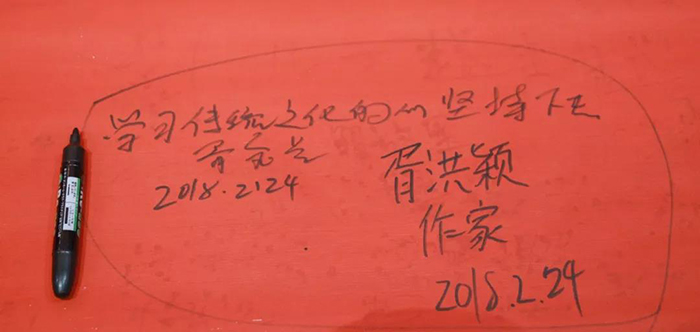 学习传统文化的心坚持下去
2018.2.24
胥洪颖
作家
2018.2.24